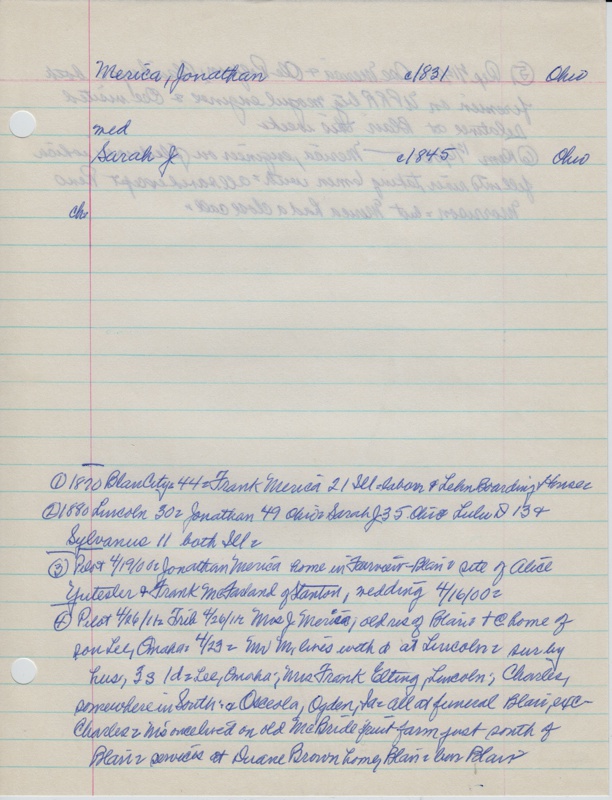 Merica, Jonathan c1831 Ohio
med
Sarah J c1845 Ohio
ch:
① 1870 Blair City = 44 = Frank Merica 21 Ill = laborer & Lehn Boarding House =
② 1880 Lincoln 30 = Jonathan 49 Ohio = Sarah J 35 Ohio = Lulu D 13 &
Sylvanus 11 both Ill =
③ Pilot 4/19/00 = Jonathan Merica home in Fairview - Blair = site of Alice
& Frank McFarland of Stanton, wedding 4/16/00 =
④ Pilot 4/26/11 = Trib 4/26/11 = Mrs J Merica, old res of Blair = + @ home of
son Lee, Omaha = 4/23 = Mr M, lives with d at Lincoln = sur by
hus, 3s 1d = Lee, Omaha; Mrs Frank Elting, Lincoln; Charles,
somewhere in South; & Osceola, Ogden, Ia = all at funeral Blair, exc -
Charles = M's once lived on old McBride fruit farm just south of
Blair = services at Duane Brown home, Blair = bur Blair